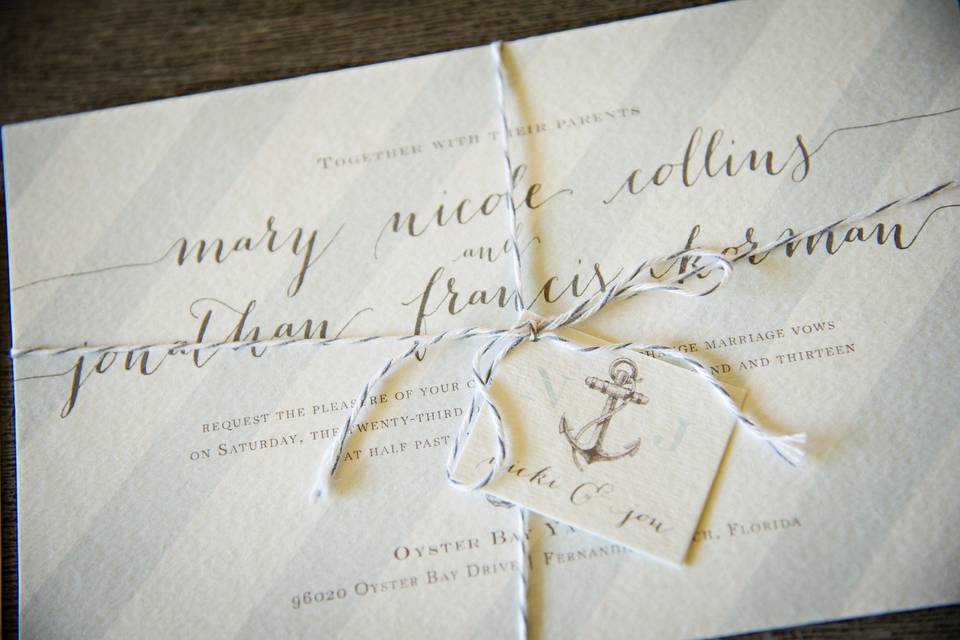 Together with their parents
mary nicole collins
and
jonathan francis korman
request the pleasure of your c
hange marriage vows
on Saturday, the twenty-third
nd and thirteen
at half past
V J
vicki & jon
Oyster Bay Ya
96020 Oyster Bay Drive | Fernandi
ch, Florida